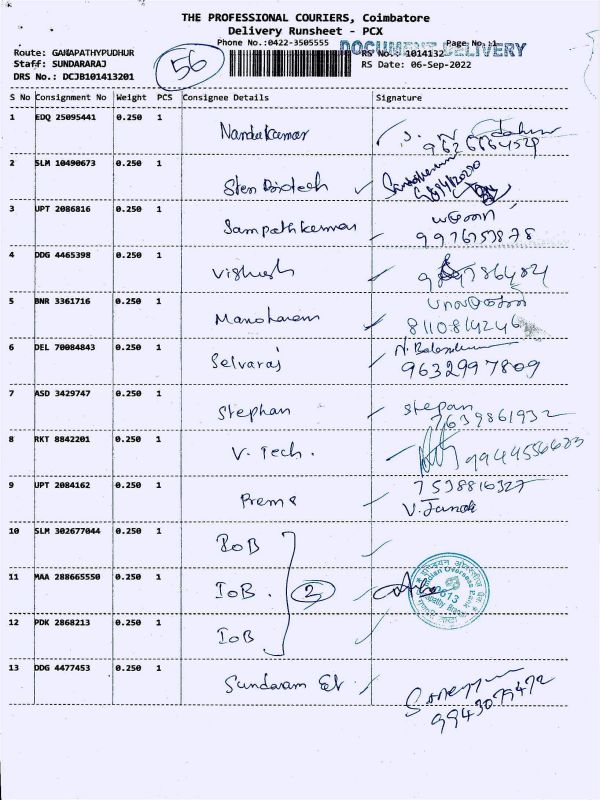 THE PROFESSIONAL COURIERS, Coimbatore
Delivery Runsheet - PCX
Phone No.:0422-3505555
Page No.:1
DOCUMENT DELIVERY
Route: GANAPATHYPUDHUR
RS No.: 1014132
Staff: SUNDARARAJ
RS Date: 06-Sep-2022
DRS No.: DCJB101413201
56
S No Consignment No Weight PCS Consignee Details Signature
1 EDQ 25095441 0.250 1 Nandakumar
2 SLM 10490673 0.250 1 Sten Biotech
3 UPT 2086816 0.250 1 Sampathkumar
9976753878
4 DDG 4465398 0.250 1 Vighnesh
5 BNR 3361716 0.250 1 Manoharan
8110814246
6 DEL 70084843 0.250 1 Selvaraj
9632997809
7 ASD 3429747 0.250 1 Stephan stepan
7639861932
8 RKT 8842201 0.250 1 V. Tech.
9944556623
9 UPT 2084162 0.250 1 Prema 7538816327
V. Janaki
10 SLM 302677044 0.250 1 IOB
11 MAA 288665550 0.250 1 IOB.
12 PDK 2868213 0.250 1 IOB
Indian Overseas Bank
13 DDG 4477453 0.250 1 Sundaram
9943079472